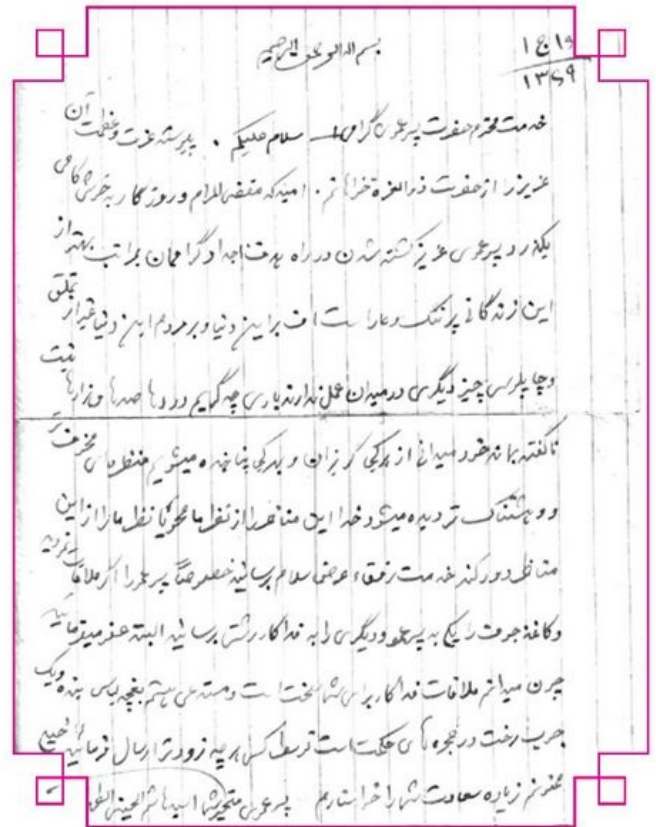 بسم الله الرحمن الرحیم
۱۳۶۹
خدمت محترم حضرت پسرعموی گرامی سلام علیکم . عزت و عظمت آن
عزیز را از حضرت ذوالعزة خواهانم . امید که مقضی المرام و روزگار به خوشی
بگذرد پسرعموی عزیز کشته شدن در راه هدف اجداد گراممان بمراتب بهتر از
این زندگانی پر ننگ و عار است اف براین دنیا و بر مردم این دنیا غیر از تملق
و چاپلوسی چیز دیگری در میدان عمل ندارند باری چه گویم دردها صدها و
ناگفته بماند خود میدانی از هر کجا گریزان و بهر کجا پناهنده میشویم منظره‌ای مخوف تر
و وحشتناک تر دیده میشود خدا این مناظر را از نظر ما محو یا نظر ما را از این
مناظر دور کند خدمت رفقاء عرض سلام برسانید خصوصاً پسرعمو را اگر ملاقات
و کاغذ جوفت را یکی به پسرعمو و دیگری را به فداکار رشتی برسانید البته عفو میفرمائید
چون میدانم ملاقات فداکار برای شما سخت است و مستدعی هستم بقچه لباس بنده و یک
چوب رخت در حجره است توسط کسی هر چه زودتر ارسال فرمائید
ممنونم زیاده سعادت شما را خواستارم پسرعموی شما سید هاشم الحسینی